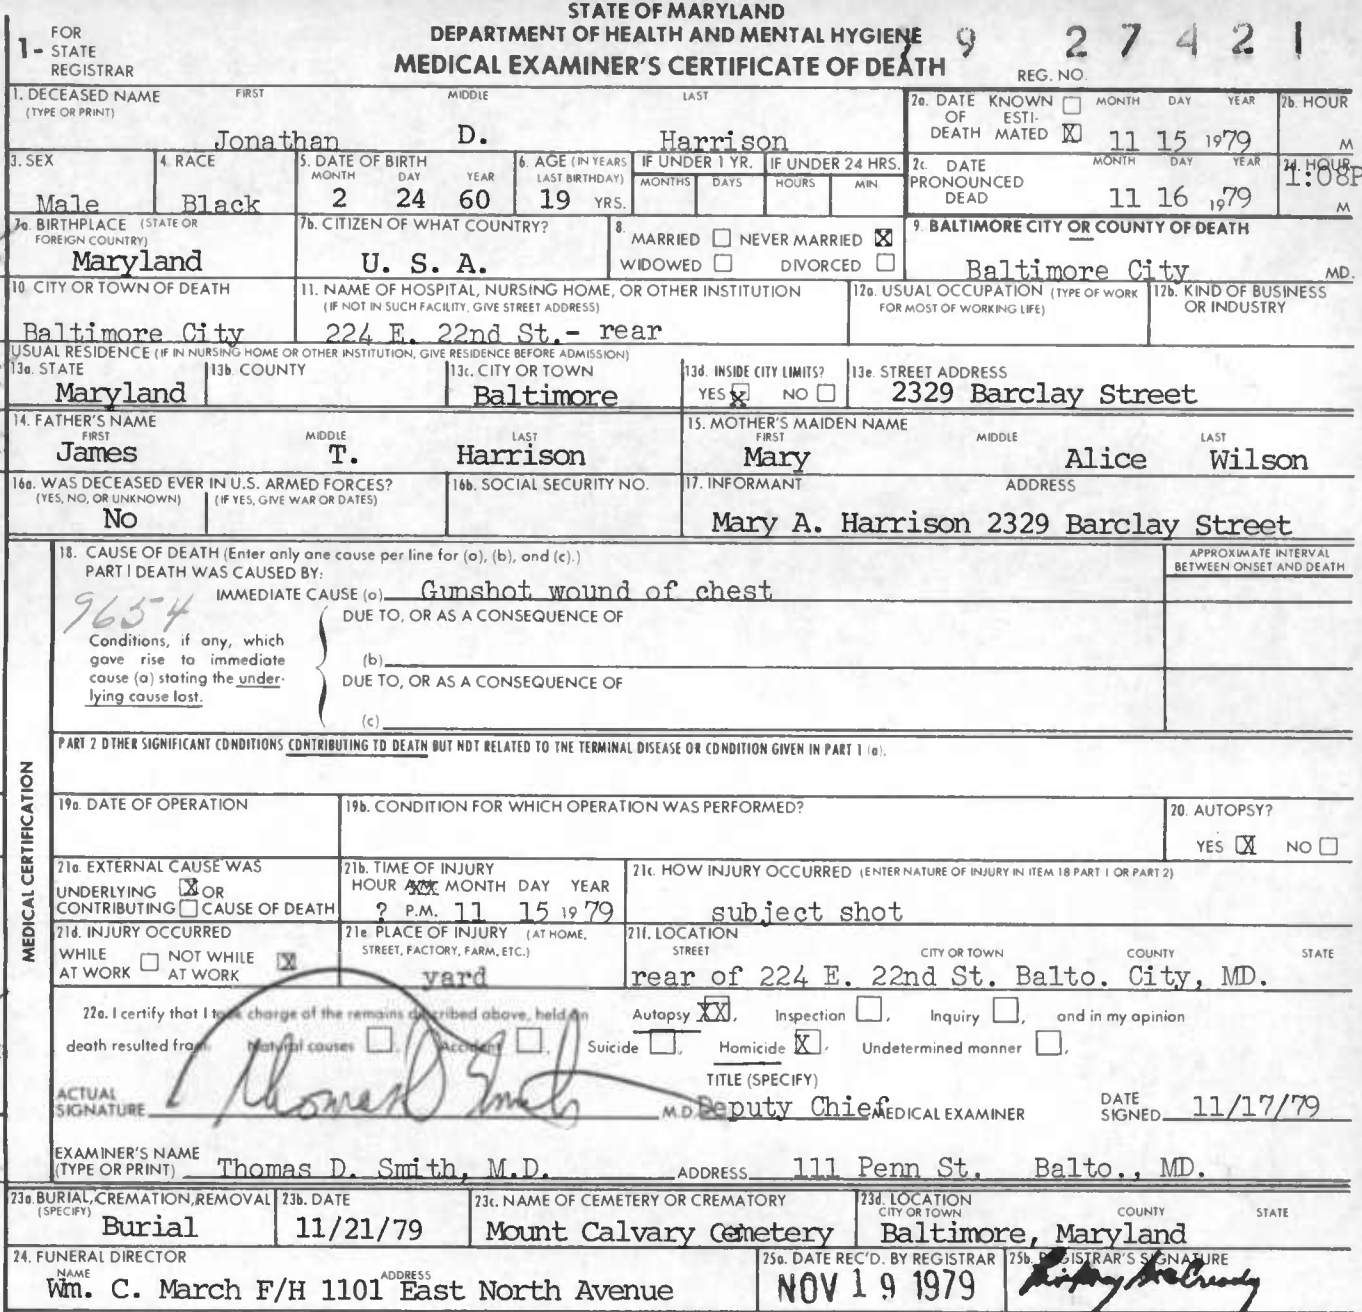 STATE OF MARYLAND
DEPARTMENT OF HEALTH AND MENTAL HYGIENE
MEDICAL EXAMINER'S CERTIFICATE OF DEATH
1- FOR STATE REGISTRAR
79 27421
REG. NO.
1. DECEASED NAME (TYPE OR PRINT) FIRST MIDDLE LAST
Jonathan D. Harrison
2a. DATE OF DEATH KNOWN ☐ ESTIMATED ☒ MONTH DAY YEAR
11 15 1979
2b. HOUR
M
3. SEX
Male
4. RACE
Black
5. DATE OF BIRTH MONTH DAY YEAR
2 24 60
6. AGE (IN YEARS LAST BIRTHDAY)
19 YRS.
IF UNDER 1 YR. MONTHS DAYS
IF UNDER 24 HRS. HOURS MIN
2c. DATE PRONOUNCED DEAD MONTH DAY YEAR
11 16 1979
2d. HOUR
1:08P M
7a. BIRTHPLACE (STATE OR FOREIGN COUNTRY)
Maryland
7b. CITIZEN OF WHAT COUNTRY?
U. S. A.
8. MARRIED ☐ NEVER MARRIED ☒
WIDOWED ☐ DIVORCED ☐
9. BALTIMORE CITY OR COUNTY OF DEATH
Baltimore City MD.
10. CITY OR TOWN OF DEATH
Baltimore City
11. NAME OF HOSPITAL, NURSING HOME, OR OTHER INSTITUTION
(IF NOT IN SUCH FACILITY, GIVE STREET ADDRESS)
224 E. 22nd St.- rear
12a. USUAL OCCUPATION (TYPE OF WORK FOR MOST OF WORKING LIFE)
12b. KIND OF BUSINESS OR INDUSTRY
USUAL RESIDENCE (IF IN NURSING HOME OR OTHER INSTITUTION, GIVE RESIDENCE BEFORE ADMISSION)
13a. STATE
Maryland
13b. COUNTY
13c. CITY OR TOWN
Baltimore
13d. INSIDE CITY LIMITS?
YES ☒ NO ☐
13e. STREET ADDRESS
2329 Barclay Street
14. FATHER'S NAME FIRST MIDDLE LAST
James T. Harrison
15. MOTHER'S MAIDEN NAME FIRST MIDDLE LAST
Mary Alice Wilson
16a. WAS DECEASED EVER IN U.S. ARMED FORCES?
(YES, NO, OR UNKNOWN) (IF YES, GIVE WAR OR DATES)
No
16b. SOCIAL SECURITY NO.
17. INFORMANT ADDRESS
Mary A. Harrison 2329 Barclay Street
MEDICAL CERTIFICATION
18. CAUSE OF DEATH (Enter only one cause per line for (a), (b), and (c).)
PART I DEATH WAS CAUSED BY:
APPROXIMATE INTERVAL BETWEEN ONSET AND DEATH
IMMEDIATE CAUSE (a) Gunshot wound of chest
9654
DUE TO, OR AS A CONSEQUENCE OF
Conditions, if any, which gave rise to immediate cause (a) stating the underlying cause last.
(b)
DUE TO, OR AS A CONSEQUENCE OF
(c)
PART 2 OTHER SIGNIFICANT CONDITIONS CONTRIBUTING TO DEATH BUT NOT RELATED TO THE TERMINAL DISEASE OR CONDITION GIVEN IN PART 1 (a).
19a. DATE OF OPERATION
19b. CONDITION FOR WHICH OPERATION WAS PERFORMED?
20. AUTOPSY?
YES ☒ NO ☐
21a. EXTERNAL CAUSE WAS
UNDERLYING ☒ OR
CONTRIBUTING ☐ CAUSE OF DEATH
21b. TIME OF INJURY
HOUR A.M. MONTH DAY YEAR
? P.M. 11 15 1979
21c. HOW INJURY OCCURRED (ENTER NATURE OF INJURY IN ITEM 18 PART I OR PART 2)
subject shot
21d. INJURY OCCURRED
WHILE AT WORK ☐ NOT WHILE AT WORK ☒
21e. PLACE OF INJURY (AT HOME, STREET, FACTORY, FARM, ETC.)
yard
21f. LOCATION
STREET CITY OR TOWN COUNTY STATE
rear of 224 E. 22nd St. Balto. City, MD.
22a. I certify that I took charge of the remains described above, held an Autopsy XX, Inspection ☐, Inquiry ☐, and in my opinion
death resulted from Natural causes ☐, Accident ☐, Suicide ☐, Homicide ☒, Undetermined manner ☐,
TITLE (SPECIFY)
ACTUAL SIGNATURE Thomas D Smith M.D. Deputy Chief MEDICAL EXAMINER DATE SIGNED 11/17/79
EXAMINER'S NAME (TYPE OR PRINT) Thomas D. Smith, M.D. ADDRESS 111 Penn St. Balto., MD.
23a. BURIAL, CREMATION, REMOVAL (SPECIFY)
Burial
23b. DATE
11/21/79
23c. NAME OF CEMETERY OR CREMATORY
Mount Calvary Cemetery
23d. LOCATION CITY OR TOWN COUNTY STATE
Baltimore, Maryland
24. FUNERAL DIRECTOR
NAME ADDRESS
Wm. C. March F/H 1101 East North Avenue
25a. DATE REC'D. BY REGISTRAR
NOV 19 1979
25b. REGISTRAR'S SIGNATURE